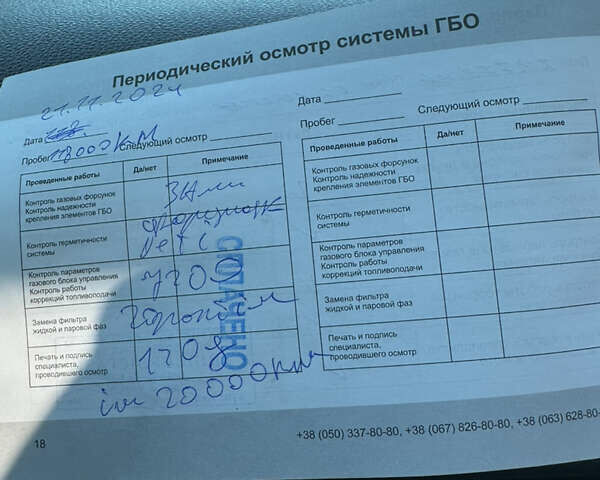 Периодический осмотр системы ГБО
21.11.2024
Дата
Пробег 118000 км Следующий осмотр
Проведенные работы Да/нет Примечание
Контроль газовых форсунок
Контроль надежности
крепления элементов ГБО
Контроль герметичности
системы
Контроль параметров
газового блока управления
Контроль работы
коррекций топливоподачи
Замена фильтра
жидкой и паровой фаз
Печать и подпись
специалиста,
проводившего осмотр
СПЛАЧЕНО
20000км
Дата
Пробег Следующий осмотр
Проведенные работы Да/нет Примечание
Контроль газовых форсунок
Контроль надежности
крепления элементов ГБО
Контроль герметичности
системы
Контроль параметров
газового блока управления
Контроль работы
коррекций топливоподачи
Замена фильтра
жидкой и паровой фаз
Печать и подпись
специалиста,
проводившего осмотр
18
+38 (050) 337-80-80, +38 (067) 826-80-80, +38 (063) 628-80-